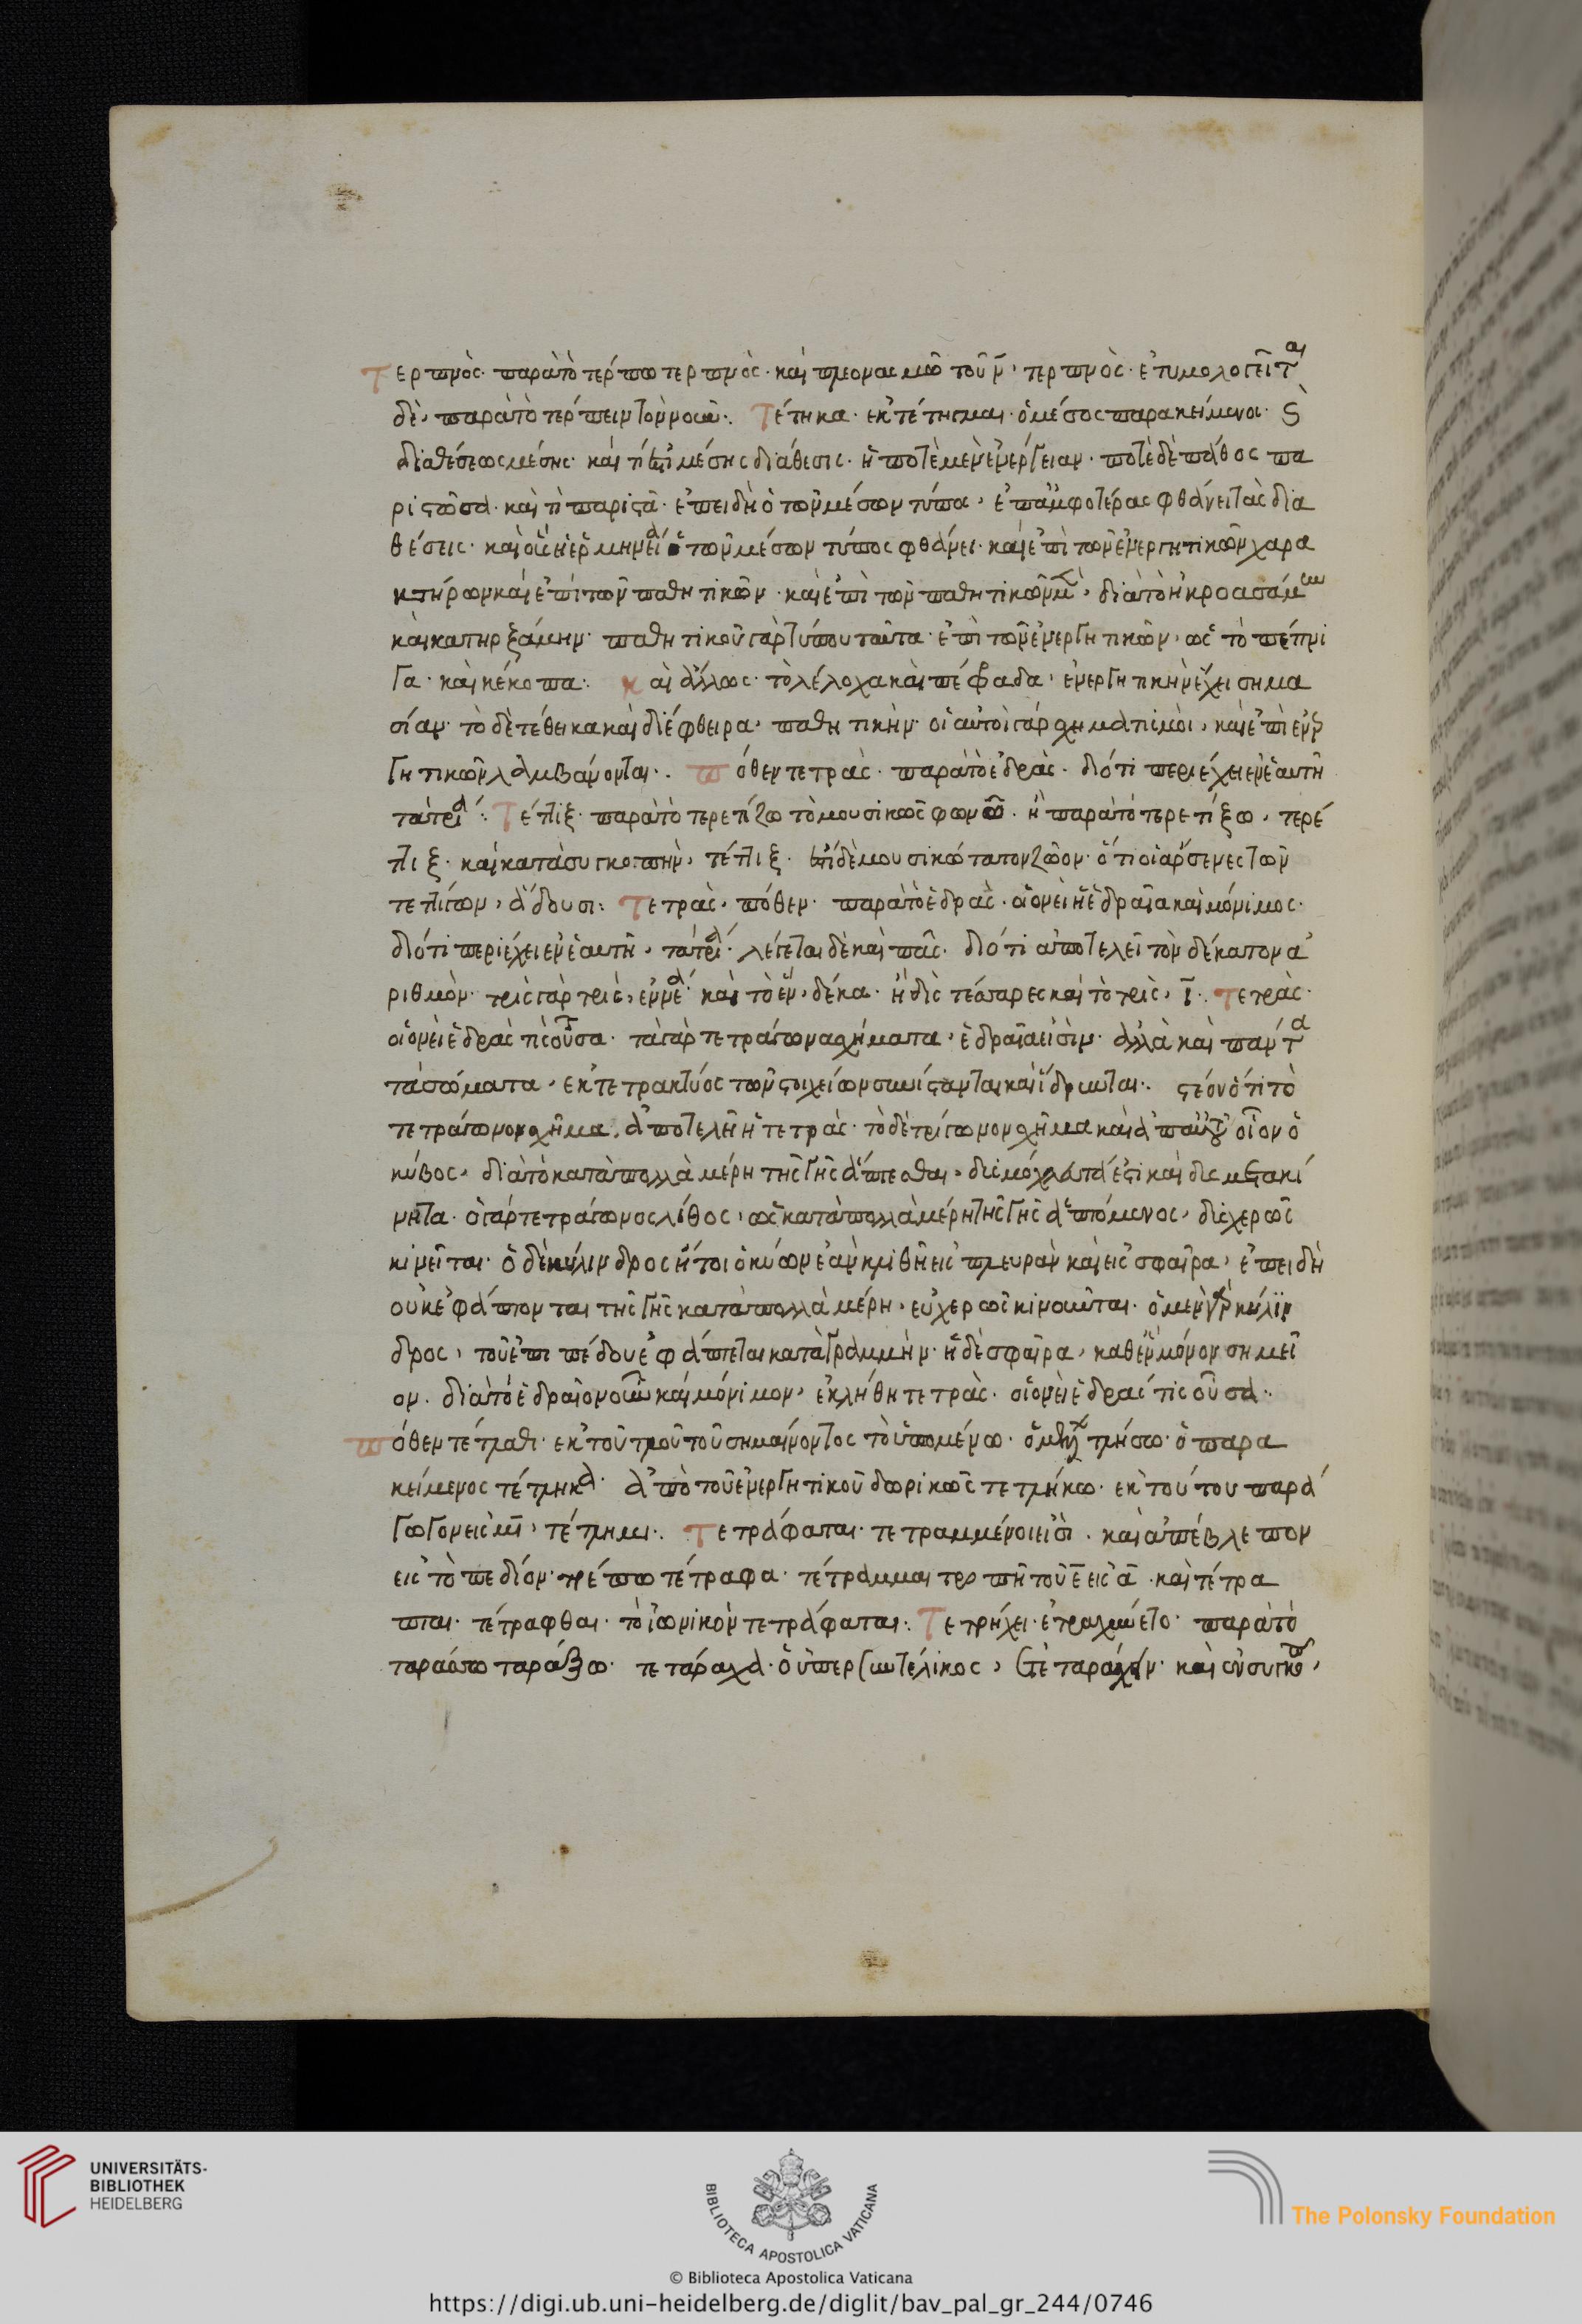 Τερπνὸς· παρὰ τὸ τέρπω τερπὸς· καὶ πλεονασμῶ τοῦ ν̄, τερπνὸς· ἐτυμολογεῖτ(αι)
δὲ, παρὰ τὸ τέρπειν τὸν νοῦν:. Τέτηκα· ἐκ τέτηγμαι· ὁ μέσος παρακείμενος·
διαθέσεως μέσης· καὶ τί ἐστι μέσης διάθεσις· ἡ ποτὲ μὲν ἐνέργειαν· ποτὲ δὲ πάθος πα
ριστῶσα· καὶ τί παριστᾶ· ἐπειδὴ ὁ τῶν μέσων τύπος, ἐπ' ἀμφοτέρας φθάνει τὰς δια
θέσεις· ὁ τῶν μέσων τύπος φθάνει· καὶ ἐπὶ τῶν ἐνεργητικῶν χαρα
κτήρων καὶ ἐπὶ τῶν παθητικῶν· καὶ ἐπὶ τῶν παθητικῶν μὲν, διὰ τὸ ἠκροασάμην
καὶ κατηρξάμην· παθητικοῦ γὰρ τύπου ταῦτα· ἐπὶ τῶν ἐνεργητικῶν, ὡς τὸ πέπνι
γα· καὶ κέκοπα:. Καὶ ἄλλως· τὸ λέλοχα καὶ πέφραδα, ἐνεργητικὴν ἔχει σημα
σίαν· τὸ δὲ τέθεικα καὶ διέφθειρα, παθητικὴν· οἱ αὐτοὶ γὰρ σχηματισμοὶ, καὶ ἐπὶ ἐνερ
γητικῶν λαμβάνονται:. Πόθεν τετρὰς· παρὰ τὸ ἑδρὰς· διότι περιέχει ἐν ἑαυτῆ
τὰ τρία:. Τέττιξ· παρὰ τὸ τερετίζω τὸ μουσικῶς φωνῶ· ἢ παρὰ τὸ τερετίξω, τερέ
τιξ· καὶ κατὰ συγκοπὴν, τέττιξ· ἐστὶ δὲ μουσικώτατον ζῶον· ὅτι οἱ ἄρσενες τῶν
τεττίγων, ἄδουσι: Τετρὰς, πόθεν· παρὰ τὸ ἑδρὰς· οἱονεὶ ἡ ἑδραία καὶ μόνιμος·
διότι περιέχει ἐν ἑαυτῆ, τὰ τρία· λέγεται δὲ καὶ πᾶς· διότι ἀποτελεῖ τὸν δέκατον ἀ
ριθμὸν· τρὶς γὰρ τρὶς, ἐννέα· καὶ τὸ ἓν, δέκα· ἢ δὶς τέσσαρες καὶ τὸ τρὶς, ῑ:. Τετρὰς·
οἱονεὶ ἑδρὰς τὶς οὖσα· τὰ γὰρ τετράγωνα σχήματα, ἑδραῖα εἰσὶν· ἀλλὰ καὶ πάντα
τὰ σώματα, ἐκ τετρακτύος τῶν στοιχείων συνίστανται καὶ ἵδρυνται:. ἰστέον ὅτι τὸ
τετράγωνον σχῆμα, ἀποτελεῖ ἡ τετρὰς· τὸ δὲ τρίγωνον σχῆμα οἷον ὁ
κύβος, διὰ τὸ κατὰ πολλὰ μέρη τῆς γῆς ἅπτεσθαι, ἐστι καὶ δυσμετακί
νητα· ὁ γὰρ τετράγωνος λίθος, ὡς κατὰ πολλὰ μέρη τῆς γῆς ἁπτόμενος, δυσχερῶς
κινεῖται· ὁ δὲ κύλινδρος ἤτοι ὁ κύων ἐὰν κλιθῆ εἰς πλευρὰν καὶ εἰς σφαῖρα, ἐπειδὴ
οὐκ ἐφάπτονται τῆς γῆς κατὰ πολλὰ μέρη, εὐχερῶς κινοῦνται· ὁ μὲν γὰρ κύλιν
δρος, τοῦ ἐπιπέδου ἐφάπτεται κατὰ γραμμὴν· ἡ δὲ σφαῖρα, καθ' ἓν μόνον σημεῖ
ον· διὰ τὸ ἑδραῖον οὖν καὶ μόνιμον, ἐκλήθη τετρὰς· οἱονεὶ ἑδράς τις οὖσα:.
Πόθεν τέτλαθι· ἐκ τοῦ τλῶ τοῦ σημαίνοντος τὸ ὑπομένω· ὁ μέλλων τλήσω· ὁ παρα
κείμενος τέτληκα· ἀπὸ τοῦ ἐνεργητικοῦ δωρικῶς τετλήκω· ἐκ τούτου παρά
γωγον εἰς μι, τέτλημι:. Τετράφαται· τετραμμένοι εἰσὶ· καὶ ἀπέβλεπον
εἰς τὸ πεδίον· τρέπω τέτραφα· τέτραμμαι τροπῆ τοῦ ε̄ εἰς ᾱ· καὶ τέτρα
πται· τέτραφθαι· τὸ ἰωνικὸν τετράφαται:. Τετρήχει· ἐταράσσετο· παρὰ τὸ
ταράσσω ταράξω· τετάραχα· ὁ ὑπερσυντέλικος, ἐτεταράχειν· καὶ ἐν συγκοπ(ῆ),
UNIVERSITÄTS-
BIBLIOTHEK
HEIDELBERG
BIBLIOTECA APOSTOLICA VATICANA
The Polonsky Foundation
© Biblioteca Apostolica Vaticana
https://digi.ub.uni-heidelberg.de/diglit/bav_pal_gr_244/0746